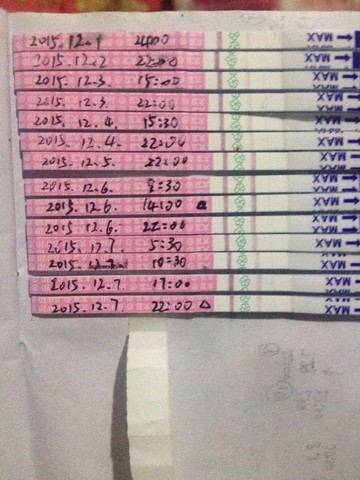 2015.12.1 22:00 MAX
2015.12.2 22:00 MAX
2015.12.3. 15:00 MAX
2015.12.3. 22:00 MAX
2015.12.4. 15:30 MAX
2015.12.4. 22:00 MAX
2015.12.5. 22:00 MAX
2015.12.6. :30 MAX
2015.12.6. 14:00 MAX
2015.12.6. 22:00 MAX
2015.12.7. 5:30 MAX
2015.12.7. 10:30 MAX
2015.12.7. 17:00 MAX
2015.12.7 22:00 △ MAX